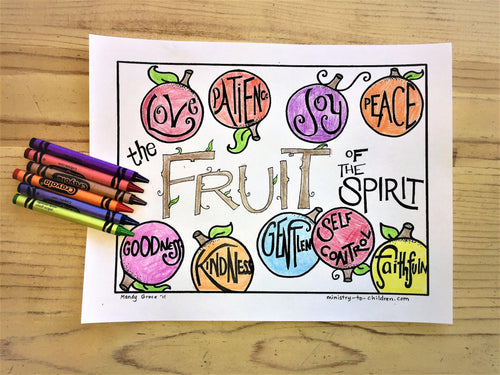 LOVE PATIENCE JOY PEACE
the FRUIT OF THE SPIRIT
GOODNESS KINDNESS GENTLEN SELF CONTROL FaiTHFULN
Mandy Groce '11 ministry-to-children.com
Crayola